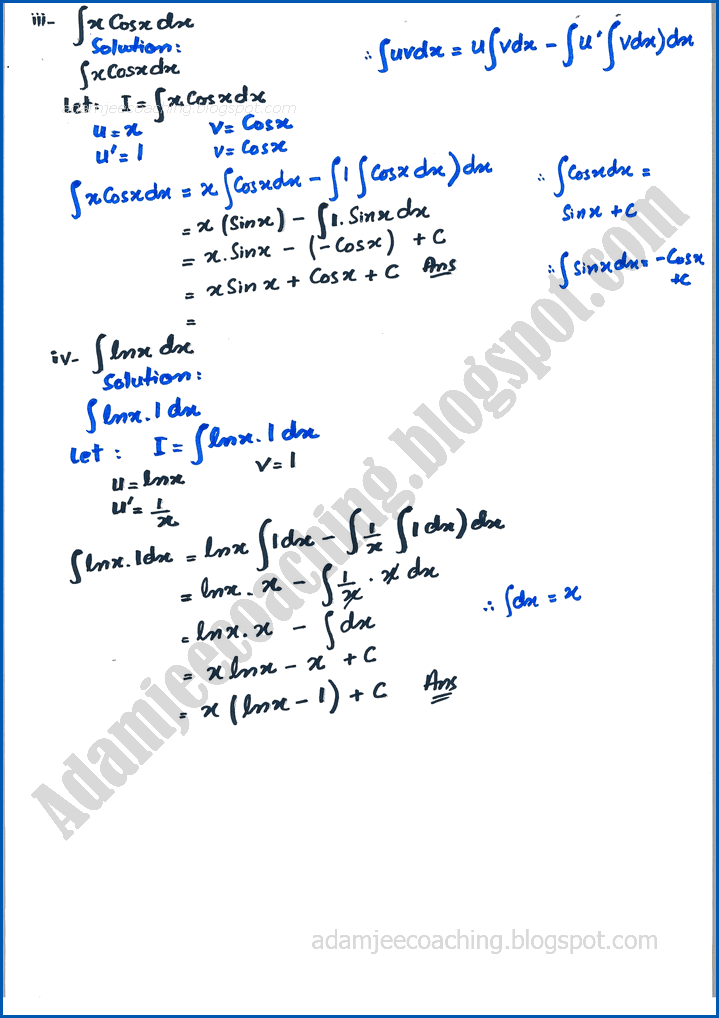 iii- ∫xCosxdx
Solution:
∫xCosxdx
∴ ∫uvdx = u∫vdx - ∫u'∫vdx)dx
Let: I = ∫xCosxdx
adamjeecoaching.blogspot.com
u = x v = Cosx
u' = 1 v = Cosx
∫xCosxdx = x∫Cosxdx - ∫1∫Cosxdx)dx
∴ ∫Cosxdx =
Sinx + C
= x(Sinx) - ∫1.Sinxdx
= x.Sinx - (-Cosx) + C
∴ ∫Sinxdx = -Cosx
+C
= xSinx + Cosx + C Ans
=
iv- ∫lnx dx
Solution:
∫lnx.1dx
Let: I = ∫lnx.1dx
u = lnx v = 1
u' = 1/x
∫lnx.1dx = lnx∫1dx - ∫1/x∫1dx)dx
= lnx.x - ∫1/x.x dx
∴ ∫dx = x
= lnx.x - ∫dx
= xlnx - x + C
= x(lnx - 1) + C Ans
Adamjeecoaching.blogspot.com
adamjeecoaching.blogspot.com